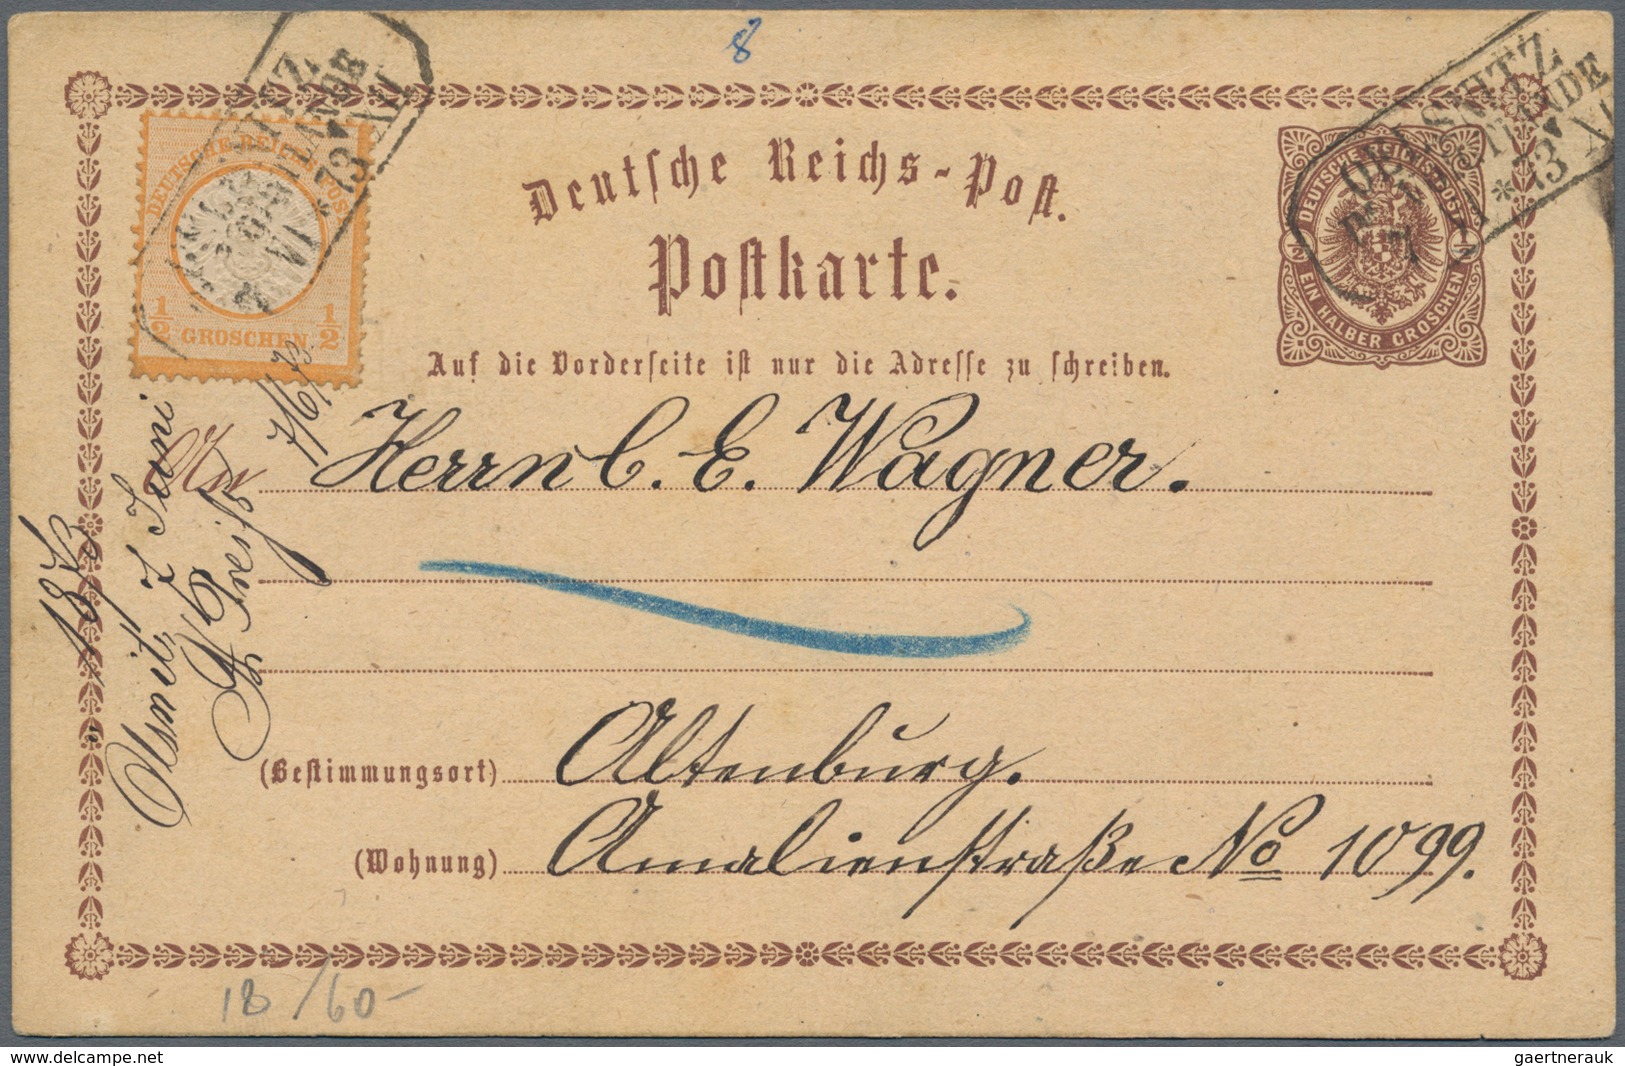 8
Deutsche Reichs-Post.
Postkarte.
Auf die Vorderseite ist nur die Adresse zu schreiben.
DEUTSCHE REICHS-POST
1/2 GROSCHEN 1/2
OELSNITZ
* 73 XI
DEUTSCHE REICHSPOST
1/2 1/2
EIN HALBER GROSCHEN
73 XII
VI
An Herrn C. E. Wagner.
(Bestimmungsort) Altenburg.
(Wohnung) Amalienstraße No 1099.
7 Juni
1873
7/6/73.
18/60-
www.delcampe.net
gaertnerauk